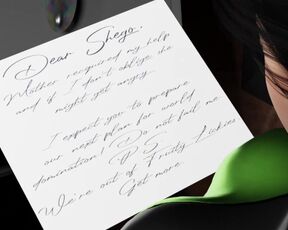 Dear Shego,
Mother required my help
and if I don't oblige she
might get angry.
I expect you to prepare
our next plan for world
domination! Do not fail me
P.S
We're out of Fruity Lickies
Get more